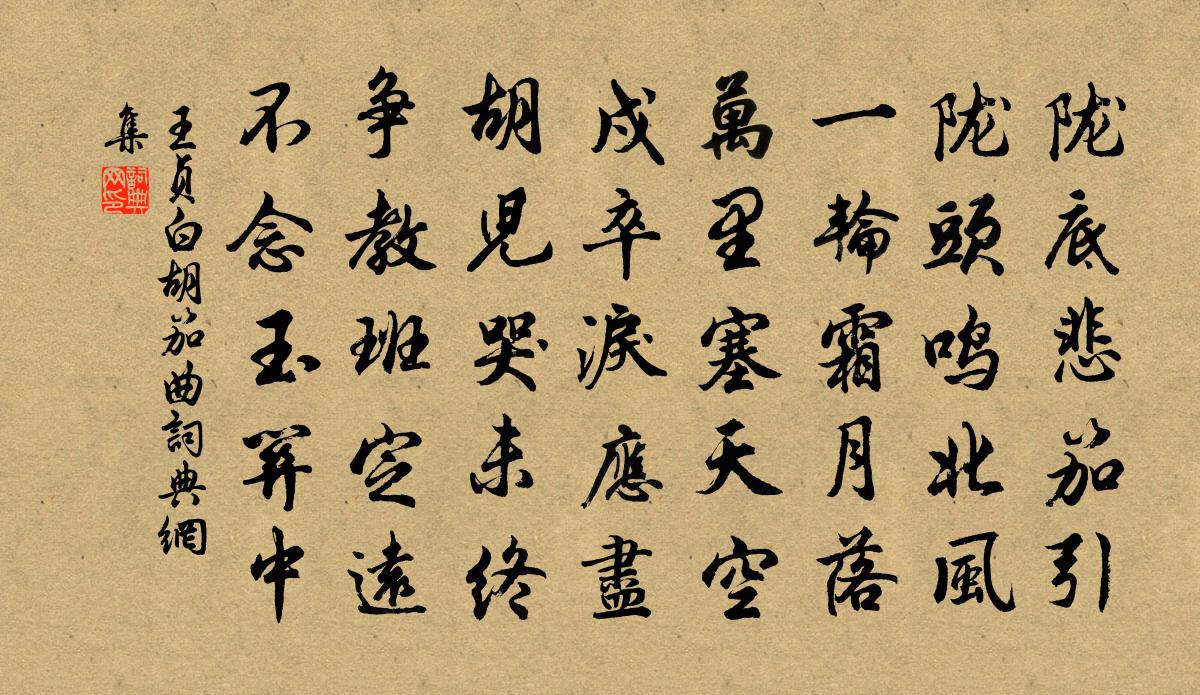 陇底悲笳引
陇頭鸣北風
一輪霜月落
萬里塞天空
戍卒淚應盡
胡児哭未終
争教班定遠
不念玉關中
王貞白胡笳曲詞典網
集
詞典网印